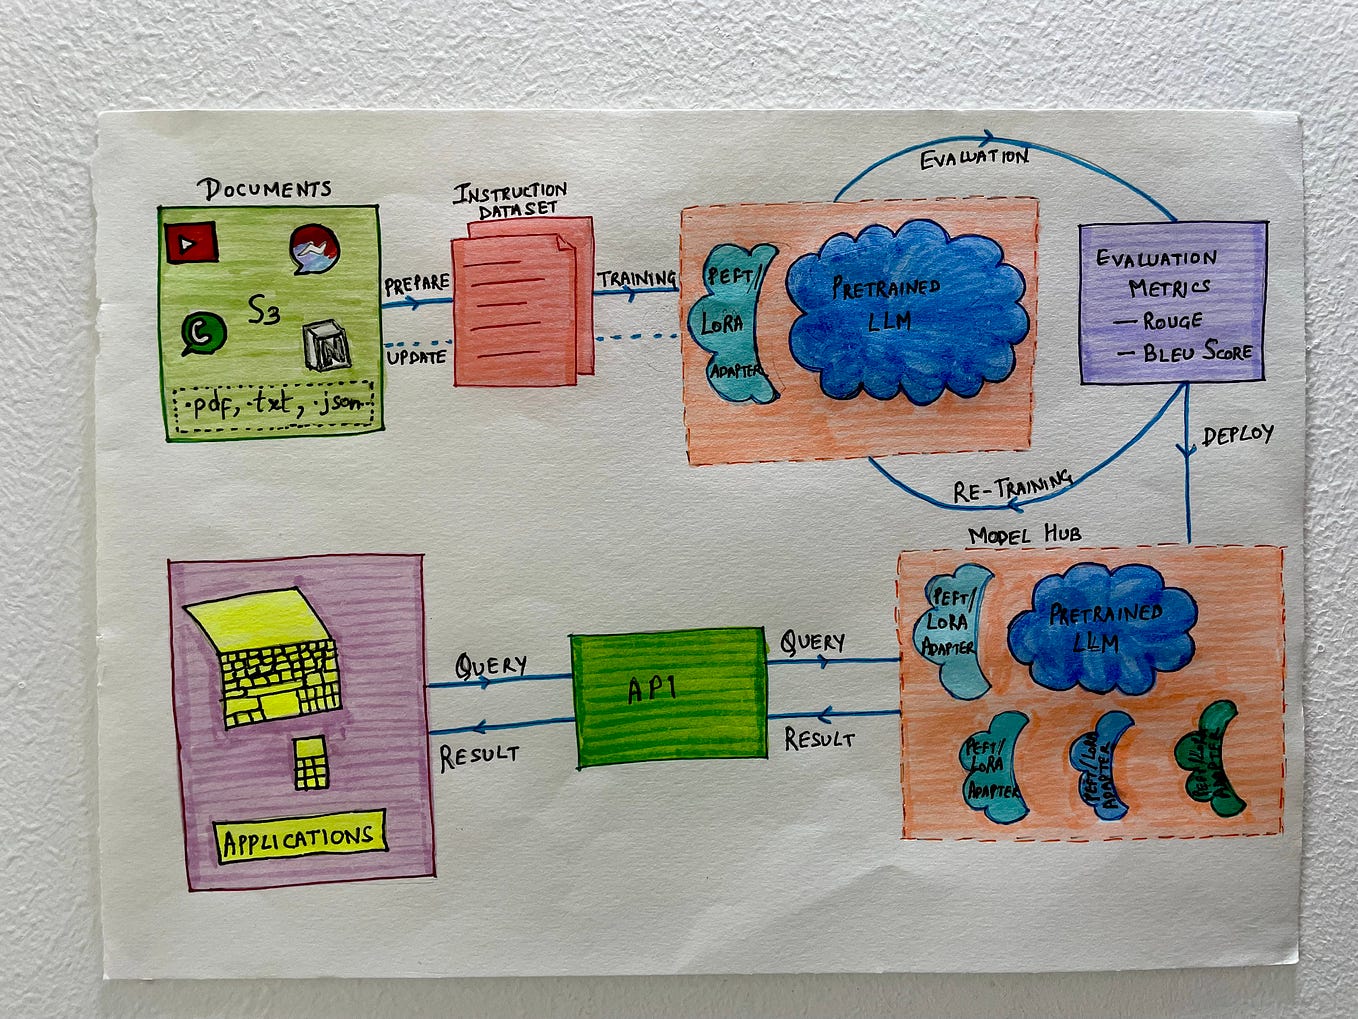 DOCUMENTS
S3
C
N
.pdf, .txt, .json
PREPARE
UPDATE
INSTRUCTION
DATASET
TRAINING
PEFT/
LORA
ADAPTER
PRETRAINED
LLM
EVALUATION
EVALUATION
METRICS
— ROUGE
— BLEU SCORE
RE-TRAINING
DEPLOY
MODEL HUB
PEFT/
LORA
ADAPTER
PRETRAINED
LLM
PEFT/
LORA
ADAPTER
PEFT/LORA
ADAPTER
PEFT/LORA
ADAPTER
QUERY
RESULT
API
QUERY
RESULT
APPLICATIONS